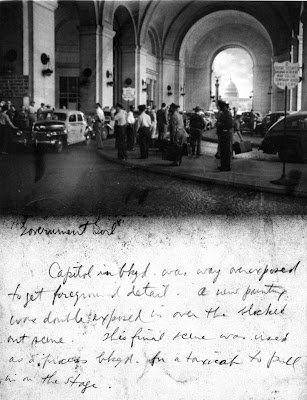 "Government Girl"
Capitol in bkgd. was way overexposed
to get foreground detail. A new painting
were double exposed in over the blocked
out scene. This final scene was used
as a process bkgd. for a taxicab to pull
in on the stage.